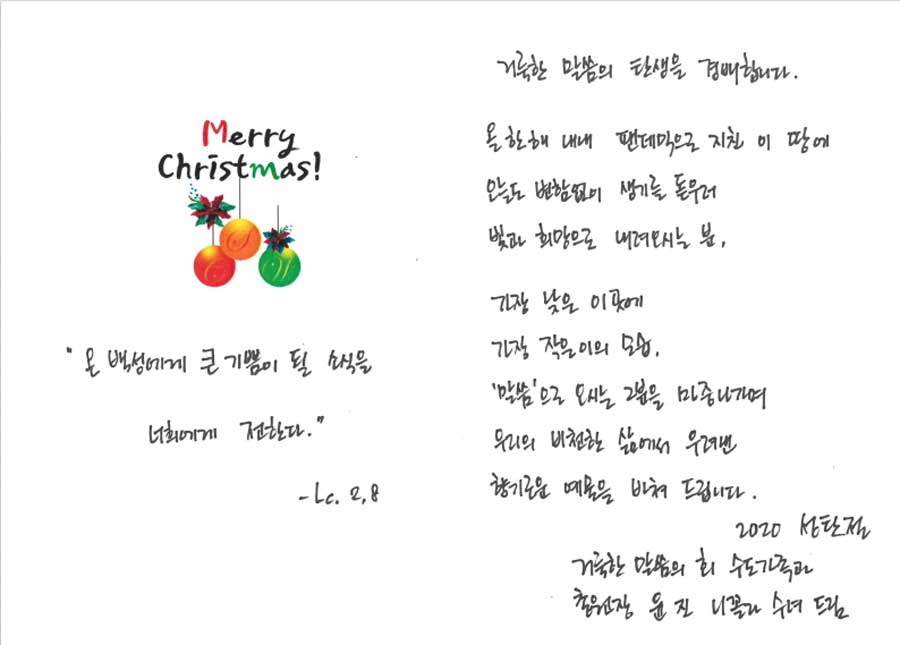 Merry
Christmas!
"온 백성에게 큰 기쁨이 될 소식을
너희에게 전한다."
-Lc. 2,8
거룩한 말씀의 탄생을 경배합니다.
올 한해 내내 팬데믹으로 지친 이 땅에
오늘도 변함없이 생기를 돋우러
빛과 희망으로 내려오시는 분,
가장 낮은 이곳에
가장 작은이의 모습,
'말씀'으로 오시는 그분을 마중나가며
우리의 비천한 삶에서 우려낸
향기로운 예물을 바쳐 드립니다.
2020 성탄절
거룩한 말씀의 회 수도가족과
총원장 윤 진 니꼴라 수녀 드림